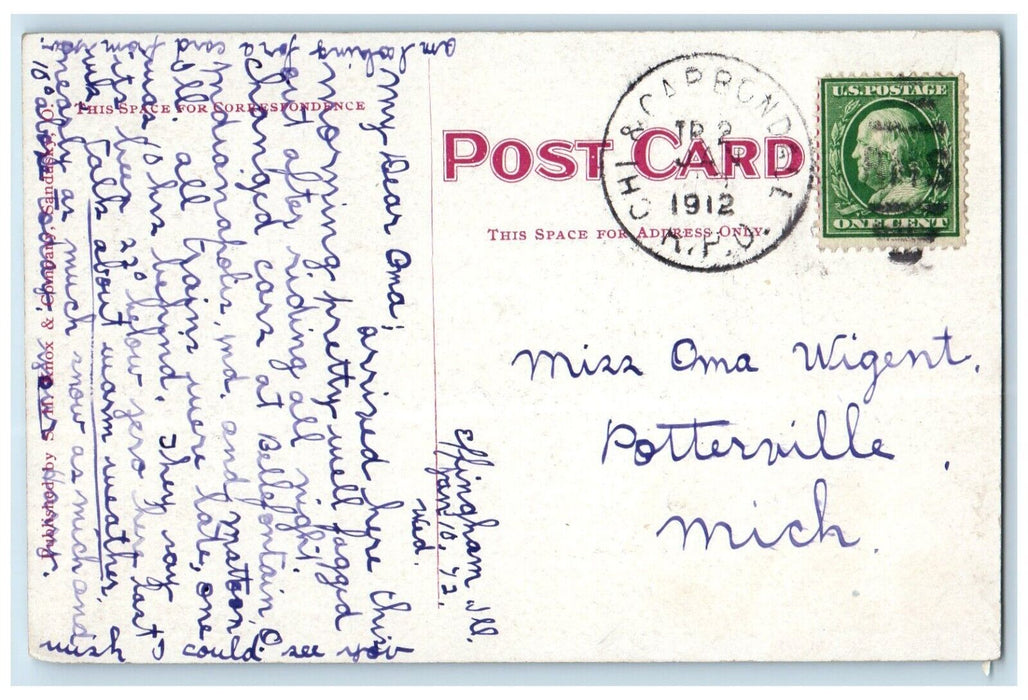 THIS SPACE FOR CORRESPONDENCE
POST CARD
THIS SPACE FOR ADDRESS ONLY
CHI & CARBONDALE
TR 2
JAN
1912
R.P.O.
U.S. POSTAGE
ONE CENT
Miss Oma Wigent.
Potterville,
Mich.
Effingham Ill.
Jan 10, '12.
Wed.
My Dear Oma;
arrived here this
morning, pretty well fagged
out after riding all night.
Changed cars at Bellefontain, O
Indianapolis, Ind. and Mattoon,
Ill. all trains were late, one
was 10 hrs behind. They say
its been 22° below zero here last
wk. Talk about warm weather.
nearly as much snow as mich and
10° above
am looking for a card from you
wish I could see you
Published by S. M. Knox & Company, Sandusky, O.